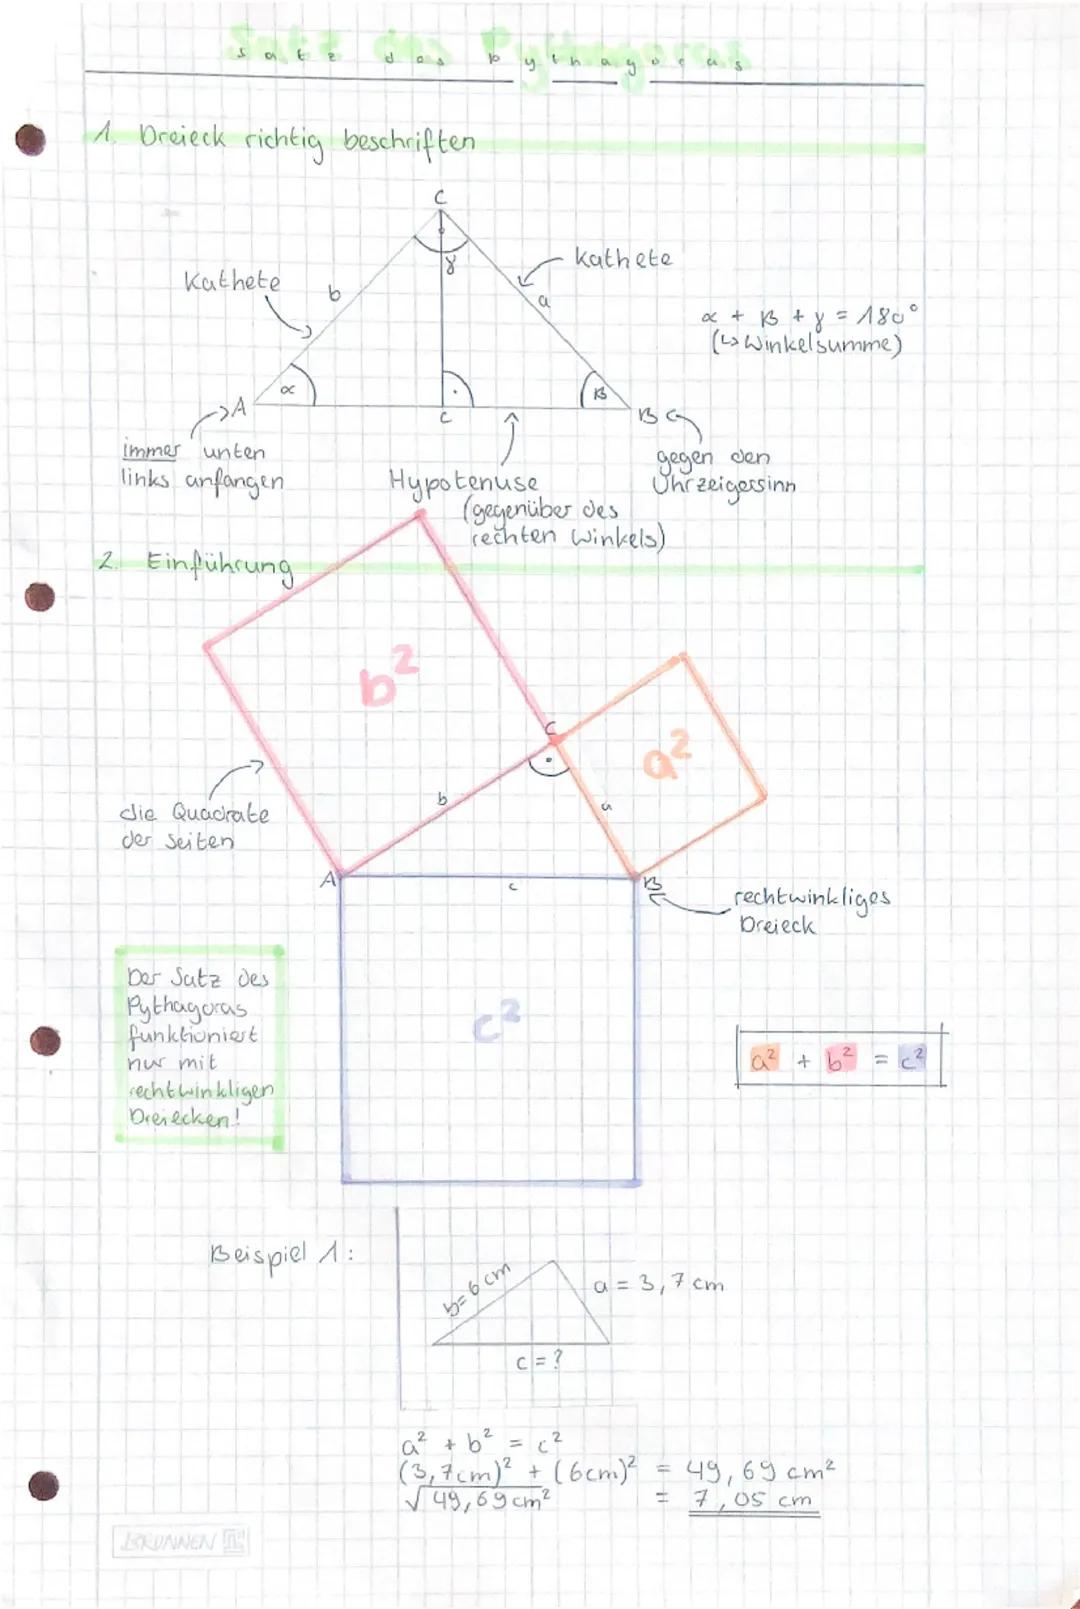 Satz des Pythagoras
1. Dreieck richtig beschriften
C
Kathete
b
γ
Kathete
a
α + β + γ = 180°
(↳ Winkelsumme)
α
β
A
c
B
immer unten
links anfangen
Hypotenuse
(gegenüber des
rechten Winkels)
gegen den
Uhrzeigersinn
2. Einführung
b²
C
a²
b
a
die Quadrate
der Seiten
A
c
B
rechtwinkliges
Dreieck
Der Satz des
Pythagoras
funktioniert
nur mit
rechtwinkligen
Dreiecken!
c²
a² + b² = c²
Beispiel 1:
b= 6 cm
a = 3,7 cm
c = ?
a² + b² = c²
(3,7cm)² + (6cm)² = 49,69 cm²
√49,69cm² = 7,05 cm
BRUNNEN